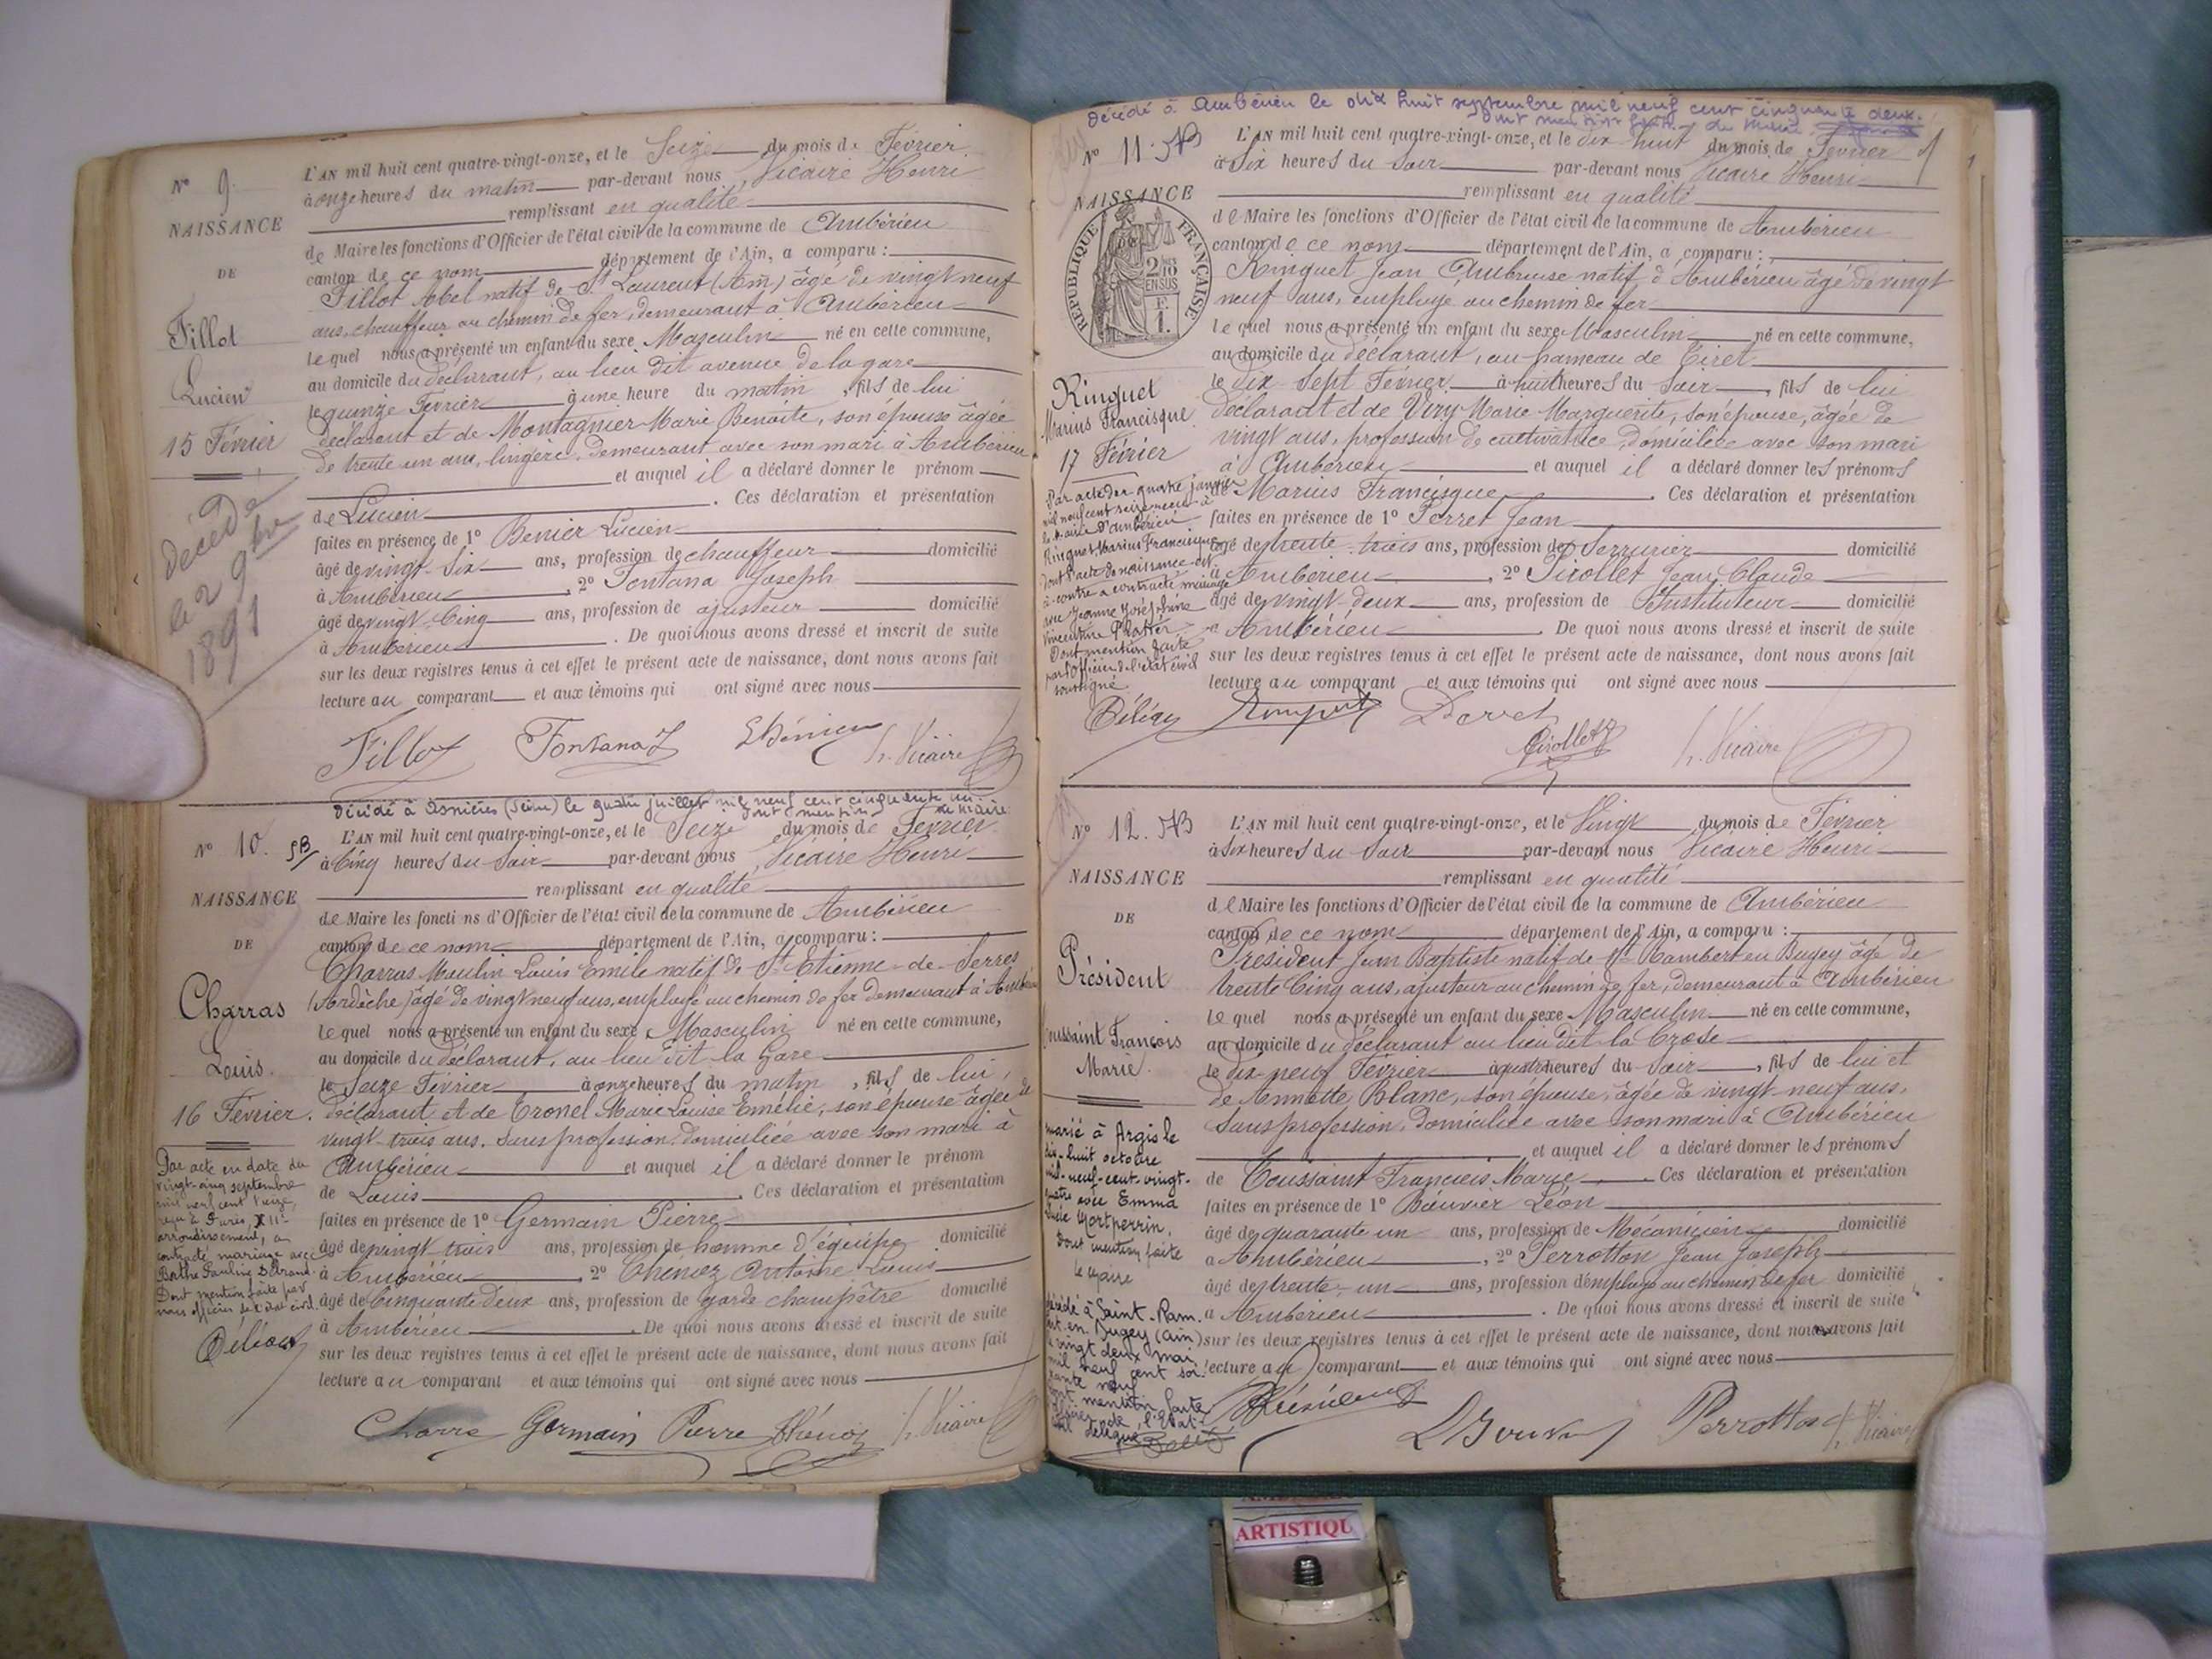 N° 9.
NAISSANCE
DE
Fillot
Lucien
15 Février
décédé
le 2 9bre
1891
L'AN mil huit cent quatre-vingt-onze, et le Seize du mois de Février
à onze heures du matin par-devant nous, Vicaire Henri
remplissant en qualité
de Maire les fonctions d'Officier de l'état civil de la commune de Ambérieu
canton de ce nom département de l'Ain, a comparu :
Fillot Abel natif de St Laurent (Ain) âgé de vingt neuf
ans, chauffeur au chemin de fer, demeurant à Ambérieu
lequel nous a présenté un enfant du sexe Masculin né en cette commune,
au domicile du déclarant, au lieu dit avenue de la gare
le quinze Février à une heure du matin, fils de lui
déclarant et de Montagnier Marie Benoite, son épouse âgée
de trente un ans, lingère, demeurant avec son mari à Ambérieu
et auquel il a déclaré donner le prénom
de Lucien . Ces déclaration et présentation
faites en présence de 1° Benier Lucien
âgé de vingt-six ans, profession de chauffeur domicilié
à Ambérieu , 2° Fontana Joseph
âgé de vingt-cinq ans, profession de ajusteur domicilié
à Ambérieu . De quoi nous avons dressé et inscrit de suite
sur les deux registres tenus à cet effet le présent acte de naissance, dont nous avons fait
lecture au comparant et aux témoins qui ont signé avec nous
Fillot Fontana J h. Vicaire
décédé à Asnières (Seine) le quatre juillet mil neuf cent cinquante un
dont mention du Maire
N° 10.
NAISSANCE
DE
Charras
Louis.
16 Février.
Par acte en date du
vingt-cinq septembre
mil neuf cent treize,
reçu à Paris, XIIe
arrondissement, a
contracté mariage avec
Berthe Pauline
Dont mention faite par
nous officier de l'état civil.
L'AN mil huit cent quatre-vingt-onze, et le Seize du mois de Février
à Cinq heures du soir par-devant nous, Vicaire Henri
remplissant en qualité
de Maire les fonctions d'Officier de l'état civil de la commune de Ambérieu
canton de ce nom département de l'Ain, a comparu :
Charras Moulin Louis Emile natif de St Etienne-de-Serres
(Ardèche) âgé de vingt neuf ans, employé au chemin de fer demeurant à Ambérieu
lequel nous a présenté un enfant du sexe Masculin né en cette commune,
au domicile du déclarant, au lieu dit la Gare
le Seize Février à onze heures du matin, fils de lui,
déclarant et de Tronel Marie Louise Emélie, son épouse âgée de
vingt-trois ans, sans profession, domiciliée avec son mari à
Ambérieu et auquel il a déclaré donner le prénom
de Louis . Ces déclaration et présentation
faites en présence de 1° Germain Pierre
âgé de vingt trois ans, profession de homme d'équipe domicilié
à Ambérieu , 2° Thenoz Antoine Louis
âgé de Cinquante deux ans, profession de garde champêtre domicilié
à Ambérieu . De quoi nous avons dressé et inscrit de suite
sur les deux registres tenus à cet effet le présent acte de naissance, dont nous avons fait
lecture au comparant et aux témoins qui ont signé avec nous
Germain Pierre Thénoz h. Vicaire
décédé à Ambérieu le dix huit septembre mil neuf cent cinquante deux.
dont mention faite
N° 11.
NAISSANCE
RÉPUBLIQUE FRANÇAISE
2 10
EN SUS
F.
1.
Ringuet
Marius Francisque
17 Février
Par acte du quatre janvier
mil neuf cent seize reçu à
la mairie d'Ambérieu
Ringuet Marius Francisque
dont l'acte de naissance est
ci-contre a contracté mariage
avec Jeanne Joséphine
Vincentine Platter
Dont mention faite
par l'officier de l'état civil
soussigné
L'AN mil huit cent quatre-vingt-onze, et le dix huit du mois de Février
à Six heures du soir par-devant nous Vicaire Henri
remplissant en qualité
de Maire les fonctions d'Officier de l'état civil de la commune de Ambérieu
canton de ce nom département de l'Ain, a comparu :
Ringuet Jean Ambroise natif d'Ambérieu âgé de vingt
neuf ans, employé au chemin de fer
lequel nous a présenté un enfant du sexe Masculin né en cette commune,
au domicile du déclarant, au hameau de Tiret
le dix-sept Février à huit heures du soir, fils de lui
déclarant et de Véry Marie Marguerite, son épouse, âgée de
vingt ans, profession de cultivatrice, domiciliée avec son mari
à Ambérieu et auquel il a déclaré donner les prénoms
de Marius Francisque . Ces déclaration et présentation
faites en présence de 1° Perret Jean
âgé de trente-trois ans, profession de Serrurier domicilié
à Ambérieu , 2° Pirollet Jean Claude
âgé de vingt-deux ans, profession de Instituteur domicilié
à Ambérieu . De quoi nous avons dressé et inscrit de suite
sur les deux registres tenus à cet effet le présent acte de naissance, dont nous avons fait
lecture au comparant et aux témoins qui ont signé avec nous
Pirollet h. Vicaire
N° 12.
NAISSANCE
DE
Président
Toussaint François
Marie.
marié à Argis le
dix-huit octobre
mil-neuf-cent-vingt-
quatre avec Emma
Lucie Montperrin.
Dont mention faite
le Maire
décédé à Saint-Ram.
bert-en-Bugey (ain)
le vingt deux mai
mil neuf cent soi-
xante neuf
dont mention faite
l'officier de l'Etat-
civil délégué
L'AN mil huit cent quatre-vingt-onze, et le Vingt du mois de Février
à six heures du soir par-devant nous Vicaire Henri
remplissant en qualité
de Maire les fonctions d'Officier de l'état civil de la commune de Ambérieu
canton de ce nom département de l'Ain, a comparu :
Président Jean Baptiste natif de St Rambert en Bugey âgé de
trente Cinq ans, ajusteur au chemin de fer, demeurant à Ambérieu
lequel nous a présenté un enfant du sexe Masculin né en cette commune,
au domicile du déclarant au lieu dit la Croze
le dix-neuf Février à quatre heures du soir, fils de lui et
de Annette Blanc, son épouse, âgée de vingt-neuf ans,
sans profession, domiciliée avec son mari à Ambérieu
et auquel il a déclaré donner les prénoms
de Toussaint François Marie . Ces déclaration et présentation
faites en présence de 1° Bouvier Léon
âgé de quarante un ans, profession de Mécanicien domicilié
à Ambérieu , 2° Perrotton Jean Joseph
âgé de trente-un ans, profession d'employé au chemin de fer domicilié
à Ambérieu . De quoi nous avons dressé et inscrit de suite
sur les deux registres tenus à cet effet le présent acte de naissance, dont nous avons fait
lecture au comparant et aux témoins qui ont signé avec nous
Président L Bouvier Perrotton h. Vicaire
ARTISTIQU